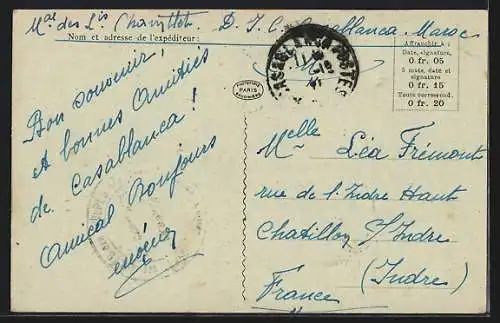 Mal des Lis D. I. C. Casablanca. Maroc
Nom et adresse de l'expéditeur:
CASABLANCA POSTES
Affranchir à :
Date, signature,
0 fr. 05
5 mots, date et
signature
0 fr. 15
Toute correspond.
0 fr. 20
PARIS
Bon souvenir!
et bonnes Amitiés
de Casablanca!
Amical Bonjour
Melle Léa Frémont
rue de l'Indre Haut
Chatillon s/ Indre
(Indre)
France